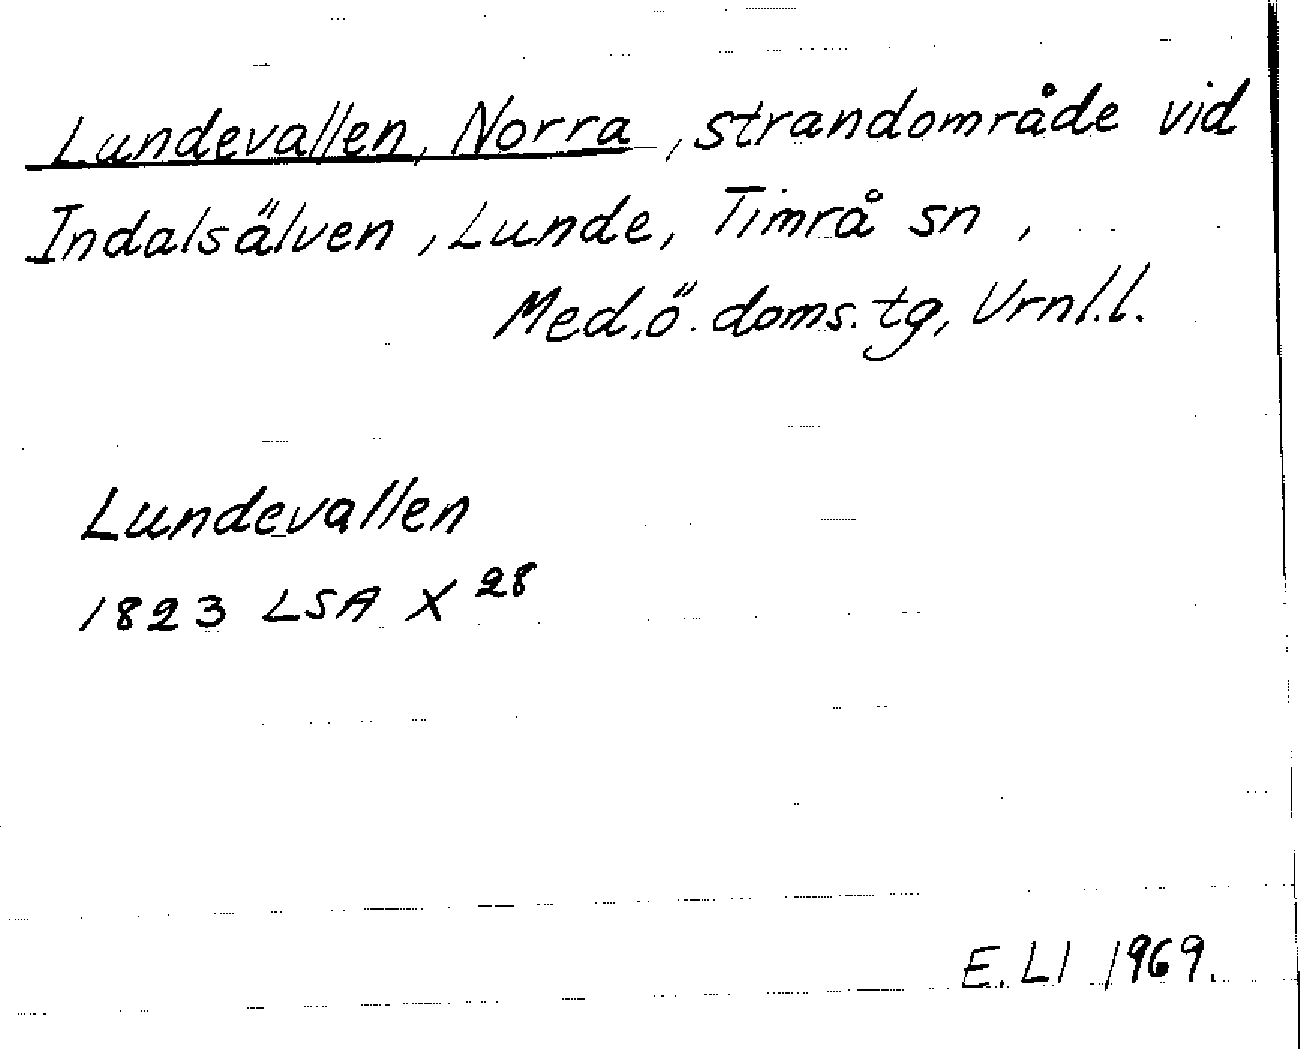 Lundevallen, Norra, strandområde vid
Indalsälven, Lunde, Timrå sn,
Med.ö. doms. tg, Vrnl.l.
Lundevallen
1823 LSA X 28
E. Ll 1969.